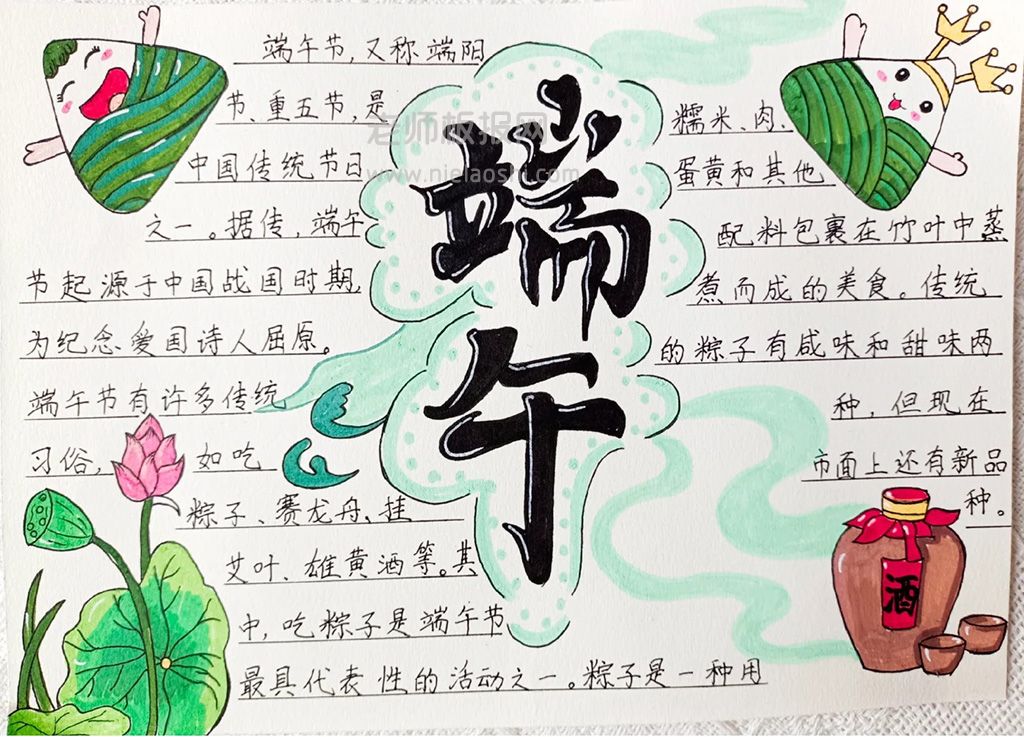 端午
端午节,又称端阳
节、重五节,是
中国传统节日
之一。据传,端午
节起源于中国战国时期,
为纪念爱国诗人屈原。
端午节有许多传统
习俗,如吃
粽子、赛龙舟、挂
艾叶、雄黄酒等。其
中,吃粽子是端午节
最具代表性的活动之一。粽子是一种用
糯米、肉、
蛋黄和其他
配料包裹在竹叶中蒸
煮而成的美食。传统
的粽子有咸味和甜味两
种,但现在
市面上还有新品
种。
酒
老师板报网
www.nielaoshi.com